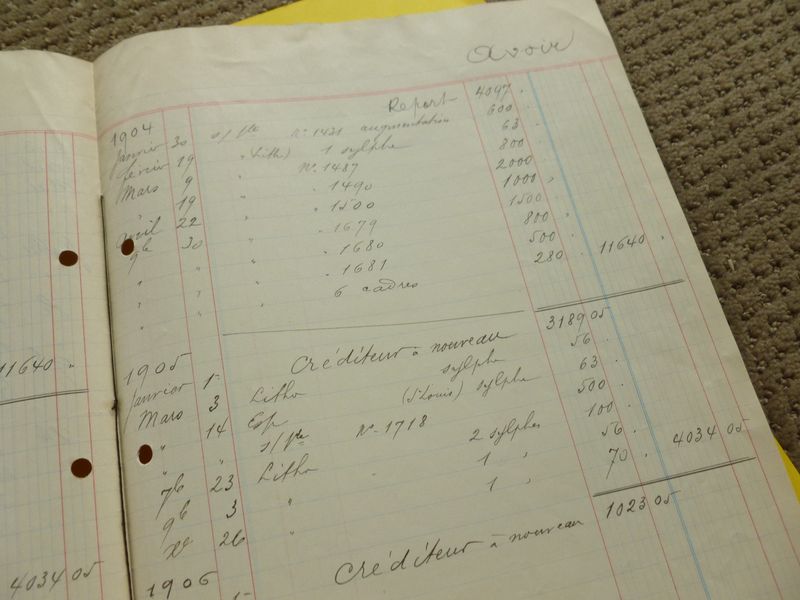 Avoir
Report 4097
1904
Janvier 30 s/fte No 1431 augmentation 600
février 19 " (Litho) 1 sylphe 63
Mars 9 " No 1487 800
" 19 " " 1490 2000
avril 22 " " 1500 1000
9b 30 " " 1679 1500
" " " " 1680 800
" " " " 1681 500
" " " 6 cadres 280 11640
11640
1905
Créditeur à nouveau 3189 05
Janvier 1 Litho sylphe 56
Mars 3 Esp (St Louis) sylphe 63
" 14 s/fte No 1718 500
" " Litho 2 sylphes 100
7b 23 " 1 " 56
9b 3 " 1 " 70 4034 05
Xe 26
4034 05
1906
Créditeur à nouveau 1023 05
1